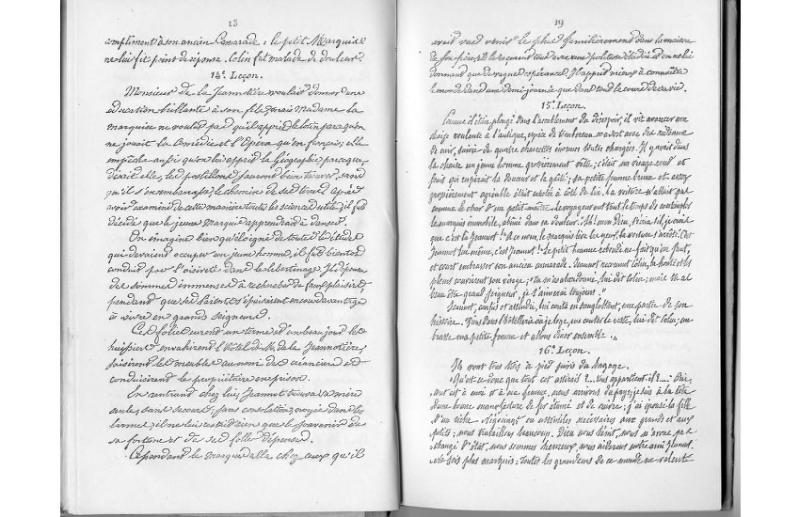 18
compliment à son ancien Camarade : le petit Marquis
ne lui fit point de réponse. Colin fut malade de douleur.
14e Leçon.
Monsieur de la Jeannotière voulait donner une
éducation brillante à son fils, mais Madame la
marquise ne voulut pas qu'il apprit le latin parce qu'on
ne jouait la Comédie et l'Opéra qu'en français ; elle
empêcha aussi qu'on lui apprit la Géographie parce que,
disait elle, les postillons sauront bien trouver, sans
qu'il s'en embarrasse, le chemin de ses terres. Après
avoir examiné de cette manière toutes les sciences utiles, il fut
décidé que le jeune Marquis apprendrait à danser.
On imagine bien qu'éloigné de toutes les études
qui devraient occuper un jeune homme, il fut bientôt
conduit par l'oisiveté dans le libertinage. Il dépensa
des sommes immenses à rechercher de faux plaisirs
pendant que ses parents s'épuisaient encore davantage
à vivre en grands seigneurs.
Ces folies eurent un terme et un beau jour les
huissiers envahirent l'hôtel de M. de la Jeannotière,
saisirent les meubles au nom des créanciers et
conduisirent le propriétaire en prison.
En rentrant chez lui, Jeannot trouva sa mère
seule, sans secours, sans consolation, noyée dans les
larmes ; il ne lui restait rien que le souvenir de
sa fortune et de ses folles dépenses.
Cependant le marquis alla chez ceux qu'il
19
avait vus venir le plus familièrement dans la maison
de son père ; ils le reçurent tous avec une politesse étudiée et en ne lui
donnant que de vagues espérances. Il apprit mieux à connaître
le monde dans une demi journée que dans tout le cours de sa vie.
15e Leçon.
Comme il était plongé dans l'accablement du désespoir, il vit avancer une
chaise roulante à l'antique, espèce de tombereau couvert avec des rideaux
de cuir, suivie de quatre charrettes énormes toutes chargées. Il y avait dans
la chaise un jeune homme grossièrement vêtu ; c'était un visage rond et
frais qui respirait la douceur et la gaîté ; sa petite femme brune et assez
grossièrement agréable était cahotée à côté de lui. La voiture n'allait pas
comme le char d'un petit maître. Le voyageur eut tout le temps de contempler
le marquis immobile, abîmé dans sa douleur. "Ah ! mon Dieu, s'écria-t-il, je crois
que c'est là Jeannot !" À ce nom, le marquis lève les yeux, la voiture s'arrête. C'est
Jeannot lui même, c'est Jeannot ! Le petit homme rebondi ne fait qu'un saut,
et court embrasser son ancien camarade. Jeannot reconnut Colin, la honte et les
pleurs couvrirent son visage ; "tu m'as abandonné, lui dit Colin ; mais tu as
beau être grand seigneur, je t'aimerai toujours."
Jeannot, confus et attendri, lui conta en sanglotant, une partie de son
histoire. "Viens dans l'hôtellerie où je loge, me conter le reste, lui dit Colin ; em-
brasse ma petite femme et allons dîner ensemble."
16e Leçon.
Ils vont tous trois à pied suivis du bagage.
— Qu'est ce donc que tout cet attirail ?... vous appartient-il ?... — Oui,
tout est à moi et à ma femme, nous arrivons du pays ; je suis à la tête
d'une bonne manufacture de fer étamé et de cuivre ; j'ai épousé la fille
d'un riche négociant en ustensiles nécessaires aux grands et aux
petits ; nous travaillons beaucoup. Dieu nous bénit, nous n'avons pas
changé d'état, nous sommes heureux, nous aiderons notre ami Jeannot.
Ne sois plus marquis : toutes les grandeurs de ce monde ne valent